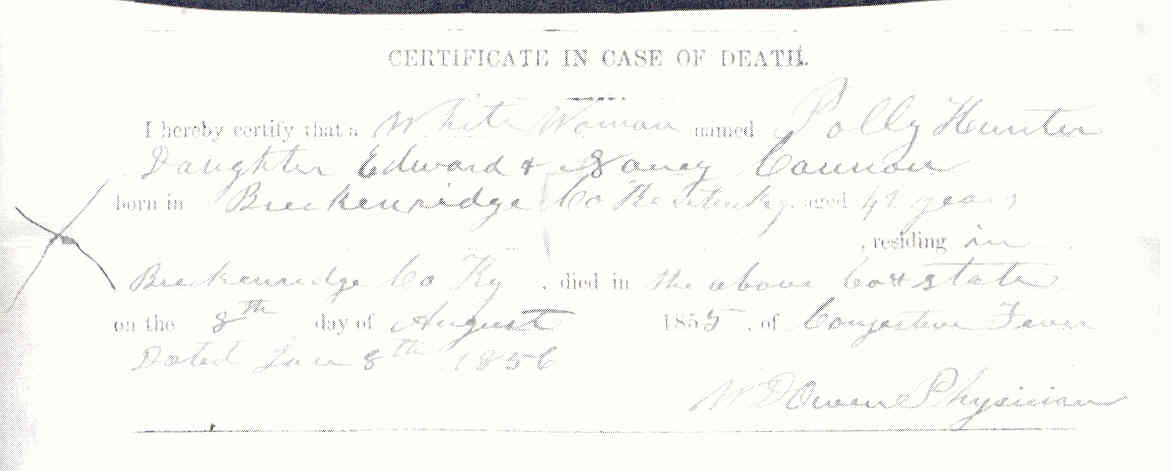 CERTIFICATE IN CASE OF DEATH.
I hereby certify that a White Woman named Polly Hunter
Daughter Edward & Nancy Cannon
born in Breckenridge Co Kentucky. aged 42 years
, residing in
Breckenridge Co Ky , died in the above Co & state
on the 8th day of August 1855, of Congestive Fever
Dated 8th 1856
W D Owen Physician